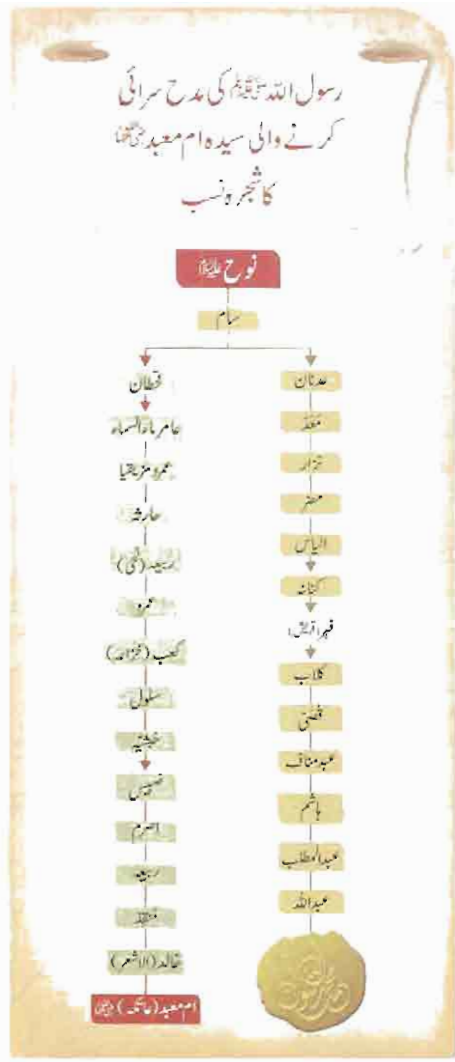 رسول اللہ ﷺ کی مدح سرائی
کرنے والی سیدہ ام معبد رضی اللہ عنہا
کا شجرہ نسب
نوح علیہ السلام
سام
عدنان
معد
نزار
مضر
الیاس
کنانہ
فہر (قریش)
کلاب
قصی
عبدمناف
ہاشم
عبدالمطلب
عبداللہ
قحطان
عامر ماء السماء
عمرو مزیقیا
حارثہ
ربیعہ (لحی)
عمرو
کعب (خزاعہ)
سلول
حبشیہ
ضبیس
اصرم
ربیعہ
منقذ
خالد (الاشعر)
ام معبد (عاتکہ) رضی اللہ عنہا